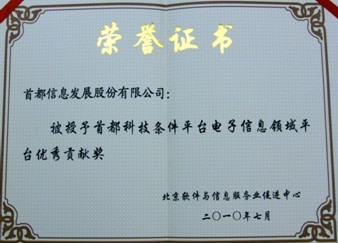 荣誉证书
首都信息发展股份有限公司：
被授予首都科技条件平台电子信息领域平
台优秀贡献奖
北京软件与信息服务业促进中心
二〇一〇年七月